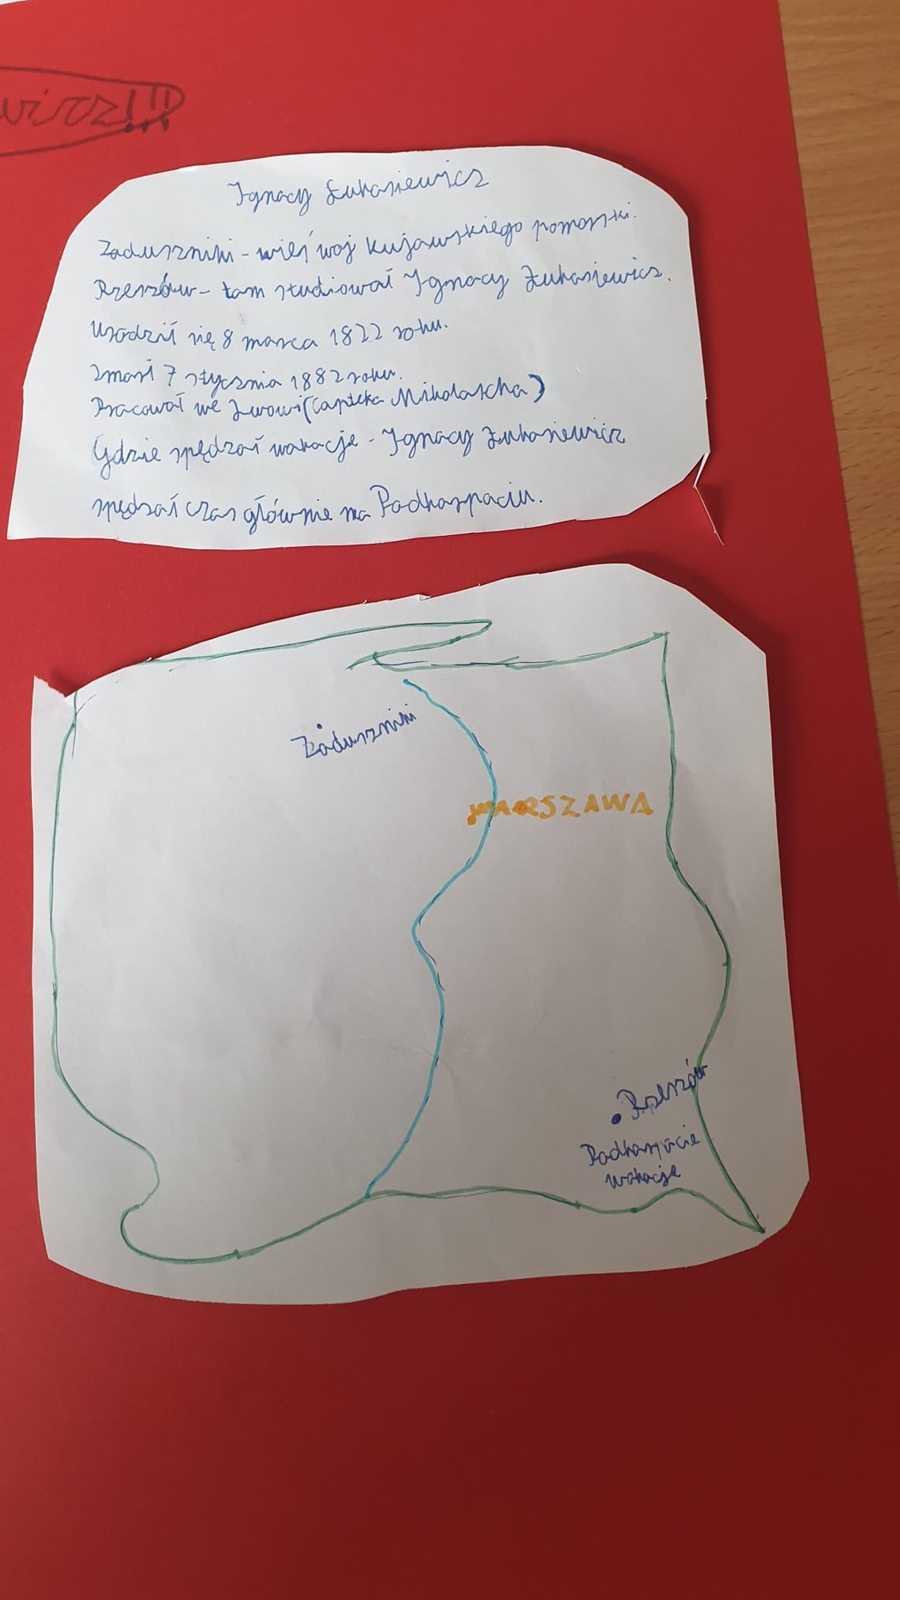 wicz!!!
Ignacy Łukasiewicz
Zaduszniki - wieś woj kujawskiego pomorski.
Rzeszów - tam studiował Ignacy Łukasiewicz.
Urodził się 8 marca 1822 roku.
Zmarł 7 stycznia 1882 roku.
Pracował we Lwowi (apteka Mikolascha)
Gdzie spędzał wakacje - Ignacy Łukasiewicz
spędzał czas głównie na Podkarpaciu.
Zaduszniki
WARSZAWA
Rzeszów
Podkarpacie
wakacje